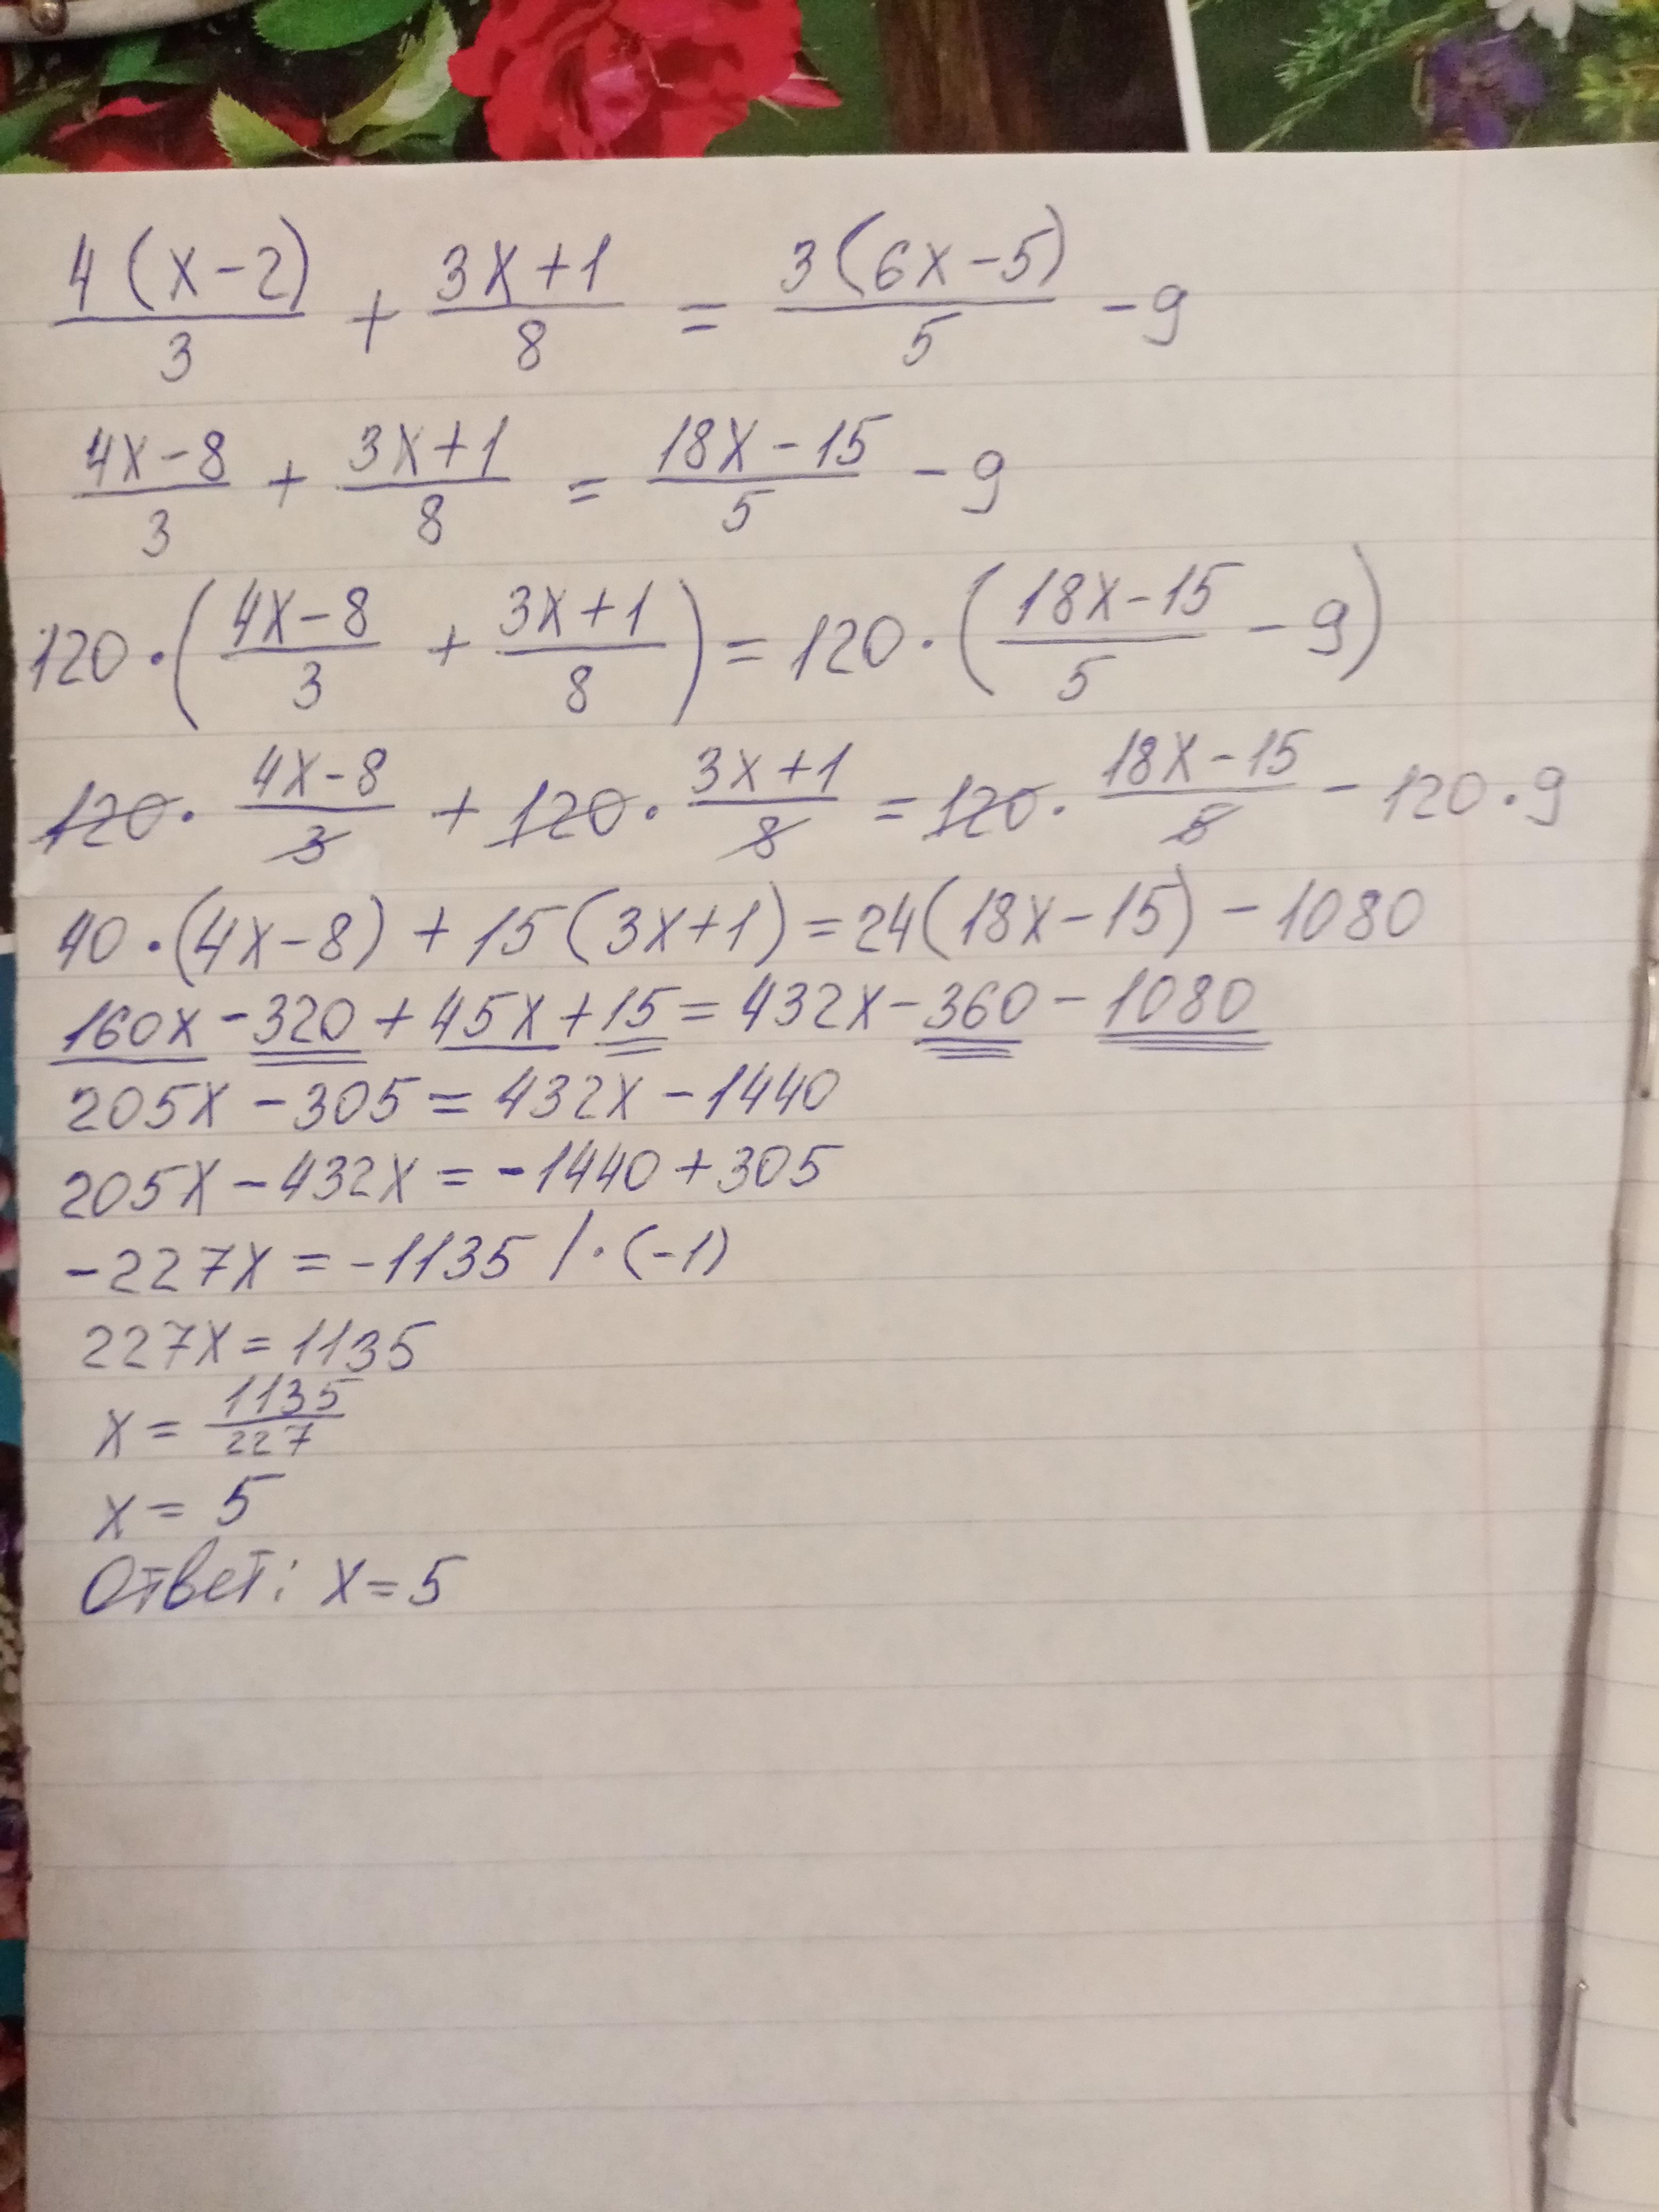 4(x-2)/3 + 3x+1/8 = 3(6x-5)/5 - 9
4x-8/3 + 3x+1/8 = 18x-15/5 - 9
120·(4x-8/3 + 3x+1/8) = 120·(18x-15/5 - 9)
120·4x-8/3 + 120·3x+1/8 = 120·18x-15/5 - 120·9
40·(4x-8) + 15(3x+1) = 24(18x-15) - 1080
160x - 320 + 45x + 15 = 432x - 360 - 1080
205x - 305 = 432x - 1440
205x - 432x = -1440 + 305
-227x = -1135 /·(-1)
227x = 1135
x = 1135/227
x = 5
Ответ: x = 5